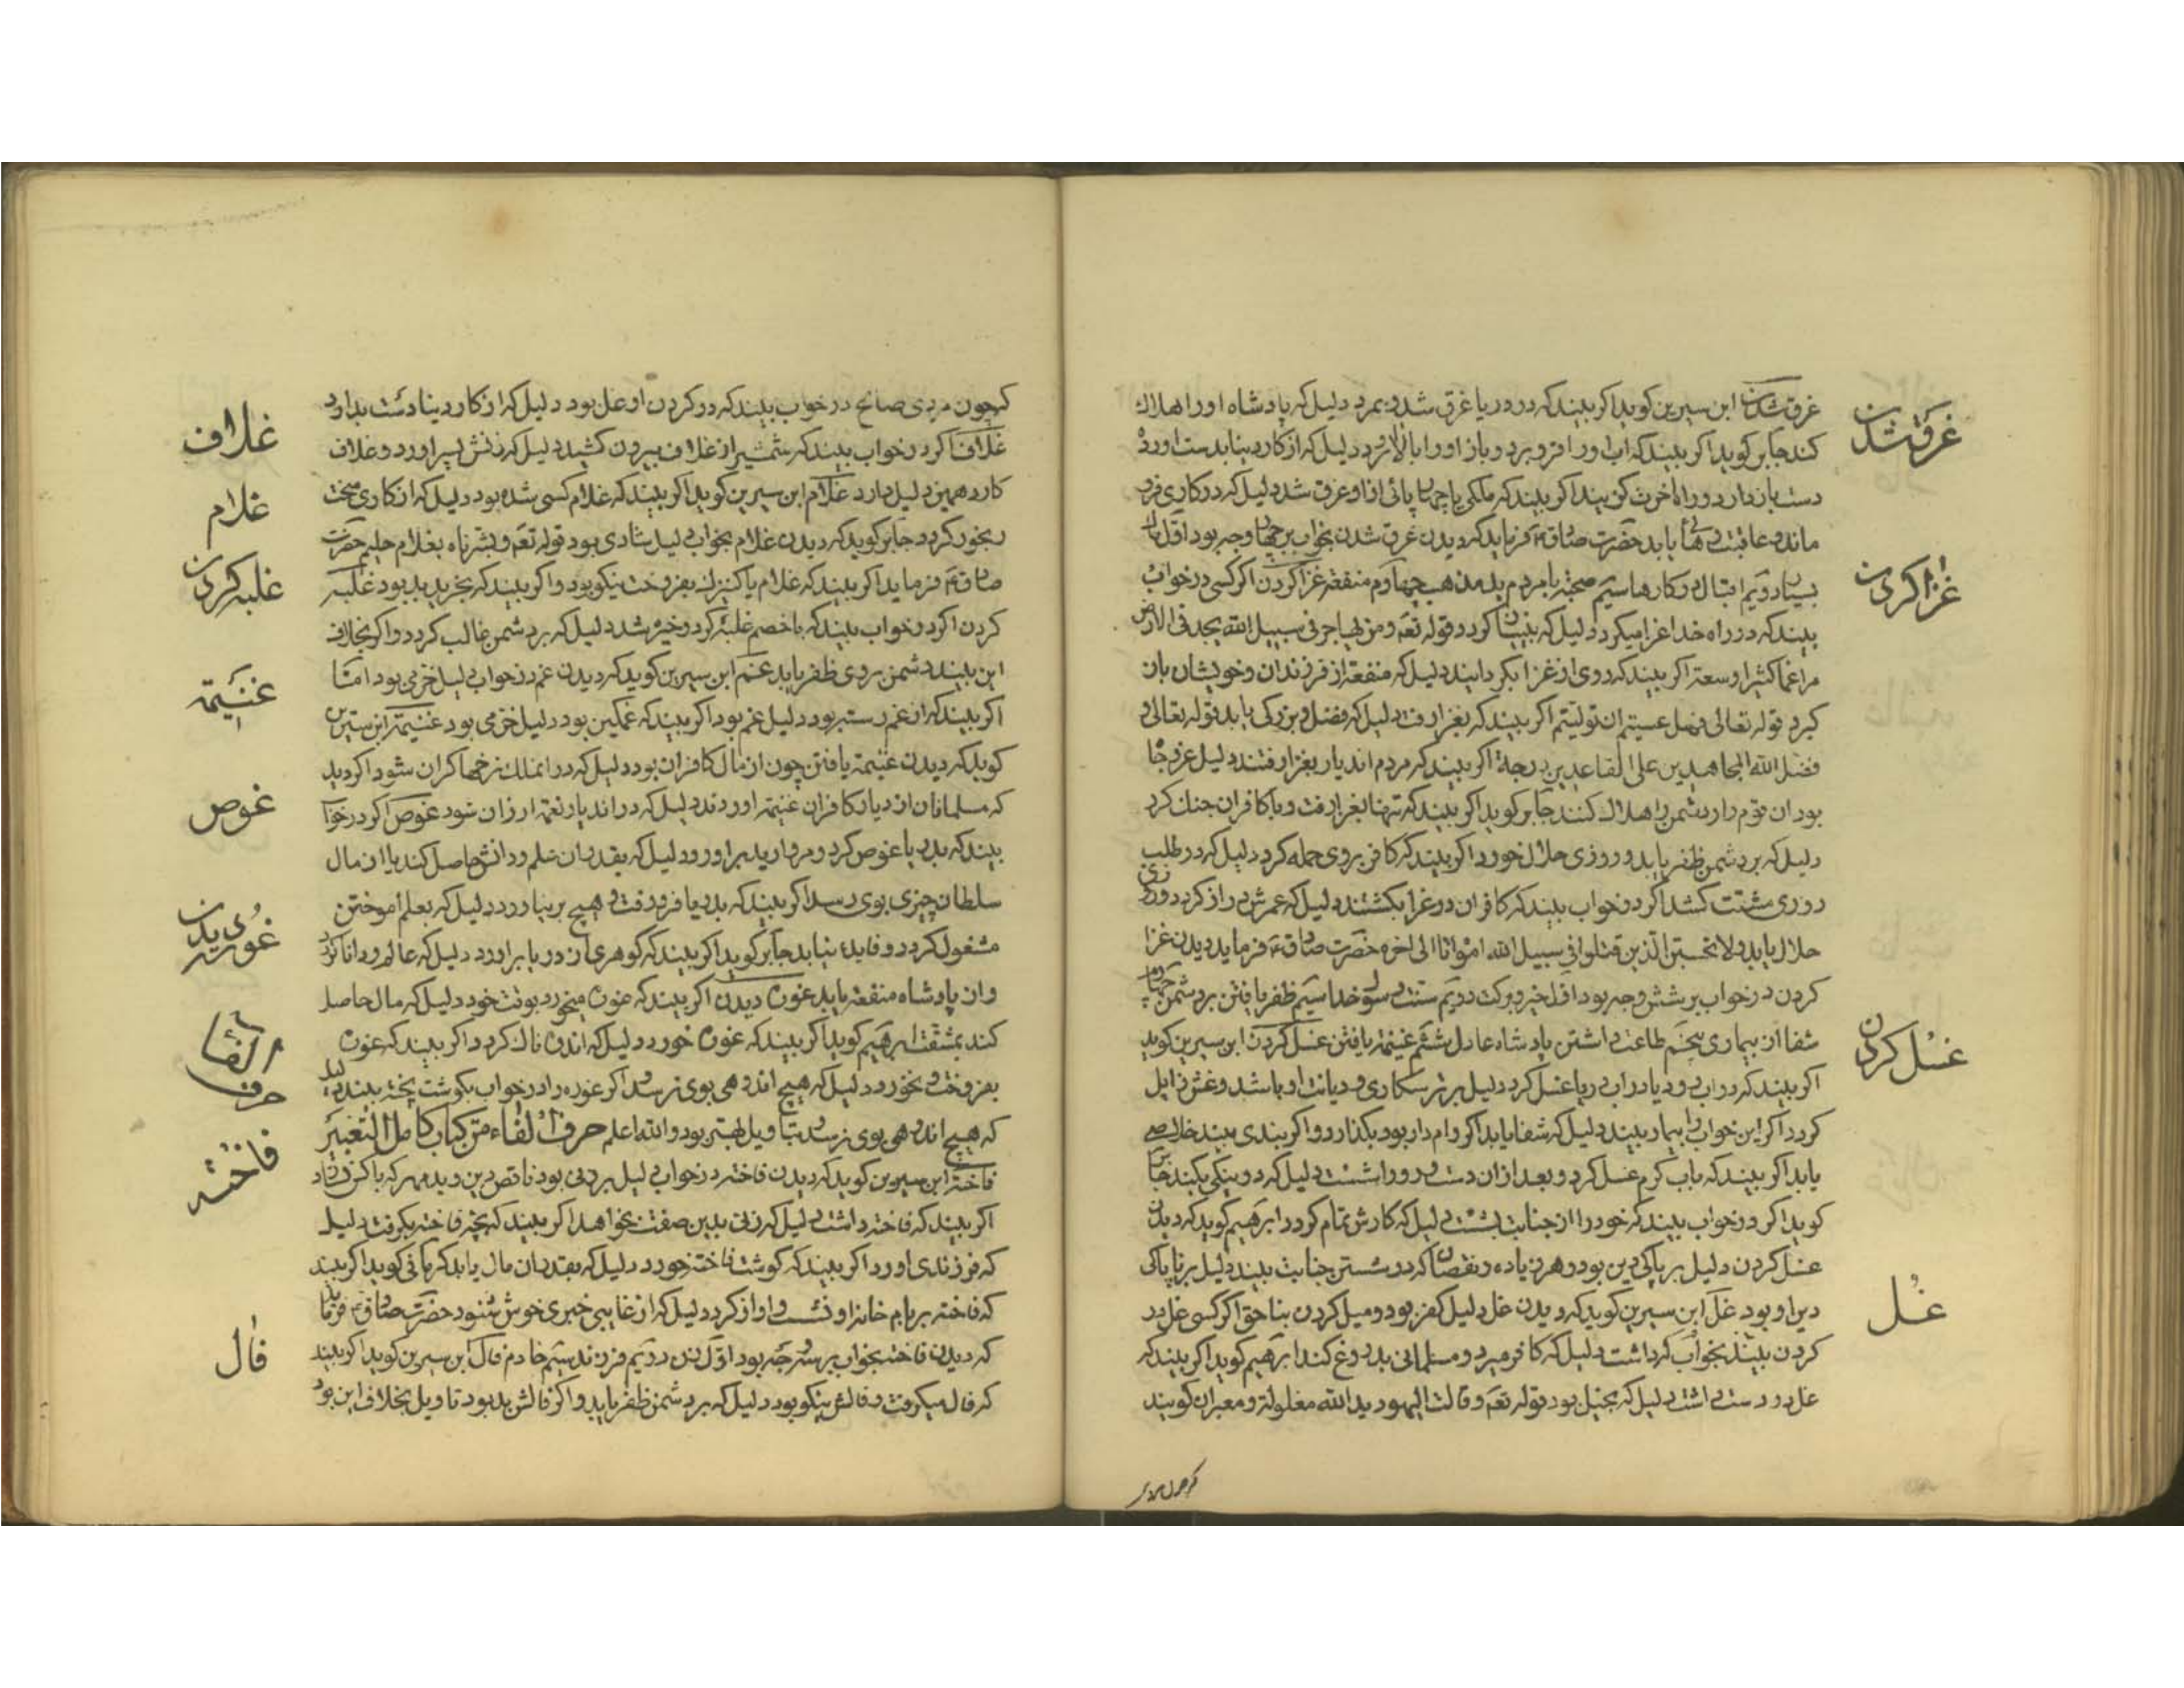 غرق شدن
غرق شدن ابن سیرین کوید اکر بیند که در دریا غرق شد و بمرد دلیل که پادشاه او را هلاک
کند جابر کوید اکر بیند که اب او را فرو برد و باز او را بالا اورد دلیل که از کار دینا بدست اورد
دست باز دارد و راه اخرت کزیند اکر بیند که ملکی یا چهارپائی از او غرق شد دلیل که در کاری فرو
ماند و عاقبت رهائی یابد حضرت صادق ع فرماید که دیدن غرق شدن بخواب بر چهار وجه بود اول مال
غزا کردن
بسیار دویم اقبال در کارها سیم صحبة با مردم بد مذهب چهارم منفعة غزا کردن اکر کسی در خواب
بیند که در راه خدا غزا میکرد دلیل که بی نیاز کردد قوله تعه و من یهاجر فی سبیل الله یجد فی الارض
مراغما کثیرا وسعة اکر بیند که روی از غزا بکردانید دلیل که منفعة از فرزندان و خویشان باز
کیرد قوله تعالی فهل عسیتم ان تولیتم اکر بیند که بغزا رفت دلیل که فضل و بزرکی یابد قوله تعالی و
فضل الله المجاهدین علی القاعدین درجة اکر بیند که مردم اندیار بغزا رفتند دلیل عز و جاه
بود ان قوم را و دشمن را هلاک کنند جابر کوید اکر بیند که تنها بغزا رفت و با کافران جنک کرد
دلیل که بر دشمن ظفر یابد و روزی حلال خورد اکر بیند که کافر بر وی حمله کرد دلیل که در طلب
روزی مشقت کشد اکر در خواب بیند که کافران در غزا بکشتند دلیل که عمرش دراز کردد و روزی
حلال یابد ولا تحسبن الذین قتلوا فی سبیل الله امواتا الی اخره حضرت صادق ع فرماید دیدن غزا
کردن در خواب بر شش وجه بود اول خیر و برکت دویم سنت رسول خدا سیم ظفر یافتن بر دشمن چهارم
غسل کردن
شفا از بیماری پنجم طاعت داشتن پادشاه عادل ششم غنیمة یافتن غسل کردن ابن سیرین کوید
اکر بیند که در اب رود یا در اب دریا غسل کرد دلیل بر رستکاری و دیانت او باشد و غمش زایل
کردد اکر این خواب را بیمار بیند دلیل که شفا یابد اکر وام دار بود بکذارد و اکر بندی بیند خلاصی
یابد اکر بیند که باب کرم غسل کرد و بعد از ان دست و رو را شست دلیل که دو نیکی بکند جابر
کوید اکر در خواب بیند که خود را از جنابت بشست دلیل که کارش تمام کردد ابرهیم کوید که دیدن
غسل کردن دلیل بر پاکی دین بود و هر زیاده و نقصان که در شستن جنابت بیند دلیل بر ناپاکی
غل
دین او بود غل ابن سیرین کوید که دیدن غل دلیل کفر بود و میل کردن بناحق اکر کسی غل در
کردن بیند بخواب که داشت دلیل که کافر میرد و مسلمانی بدروغ کند ابرهیم کوید اکر بیند که
غل در دست داشت دلیل که بخیل بود قوله تعه و قالت الیهود ید الله مغلولة و معبران کویند
که چون مردی
که چون مردی صالح در خواب بیند که در کردن او غل بود دلیل که از کار دینا دست بدارد
غلاف
غلاف اکر در خواب بیند که شمشیر از غلاف بیرون کشید دلیل که زنش پسر اورد و غلاف
غلام
کارد همین دلیل دارد غلام ابن سیرین کوید اکر بیند که غلام کسی شده بود دلیل که از کاری سخت
رنجور کردد جابر کوید که دیدن غلام بخواب دلیل شادی بود قوله تعه و بشرناه بغلام حلیم حضرت
غلبه کردن
صادق ع فرماید اکر بیند که غلام یا کنیزک بفروخت نیکو بود و اکر بیند که بخرید بد بود غلبه
کردن اکر در خواب بیند که با خصم غلبه کرد و خیره شد دلیل که بر دشمن غالب کردد و اکر بخلاف
این بیند دشمن بر وی ظفر یابد غم ابن سیرین کوید که دیدن غم در خواب دلیل خرمی بود امّا
غنیمة
اکر بیند که از غم رسته بود دلیل غم بود اکر بیند که غمکین بود دلیل خرمی بود غنیمة ابن سیرین
کوید که دیدن غنیمة یافتن چون از مال کافران بود دلیل که در انملک نرخها کران شود اکر دید
غوص
که مسلمانان از دیار کافران غنیمة اوردند دلیل که در اندیار نعمة ارزان شود غوص اکر در خواب
بیند که بدریا غوص کرد و مروارید براورد دلیل که بقدر ان علم و دانش حاصل کند یا از مال
سلطان چیزی بوی رسد اکر بیند که بدریا فرو رفت و هیچ بر نیاورد دلیل که بعلم اموختن
مشغول کردد و فایده نیابد جابر کوید اکر بیند که کوهری از دریا براورد دلیل که عالم و دانا کردد
غوره دیدن
و از پادشاه منفعة یابد غوره دیدن اکر بیند که غوره میخورد بوقت خود دلیل که مال حاصل
کند بمشقت ابرهیم کوید اکر بیند که غوره خورد دلیل که اندوهناک کردد اکر بیند که غوره
بفروخت و نخورد دلیل که هیچ اندوهی بوی نرسد اکر غوره را در خواب بکوشت پخته بیند دلیل
حرف الفاء
که هیچ اندوهی بوی نرسد و تاویل بهتر بود و الله اعلم حرف الفاء من کتاب کامل التعبیر
فاخته
فاخته ابن سیرین کوید که دیدن فاخته در خواب دلیل بر زنی بود ناقص دین و بد مهر که با کس نسازد
اکر بیند که فاخته داشت دلیل که زنی بدین صفت بخواهد اکر بیند که بچه فاخته بکرفت دلیل
که فرزندی اورد اکر بیند که کوشت فاخته خورد دلیل که بقدر ان مال یابد کرمانی کوید اکر بیند
که فاخته بر بام خانه او نشست و اواز کرد دلیل که از غایبی خبری خوش شنود حضرت صادق ع فرماید
فال
که دیدن فاخته بخواب بر سه وجه بود اول زن دویم فرزند سیم خادم فال ابن سیرین کوید اکر بیند
که فال میکرفت و فالش نیکو بود دلیل که بر دشمن ظفر یابد و اکر فالش بد بود تاویل بخلاف این بود